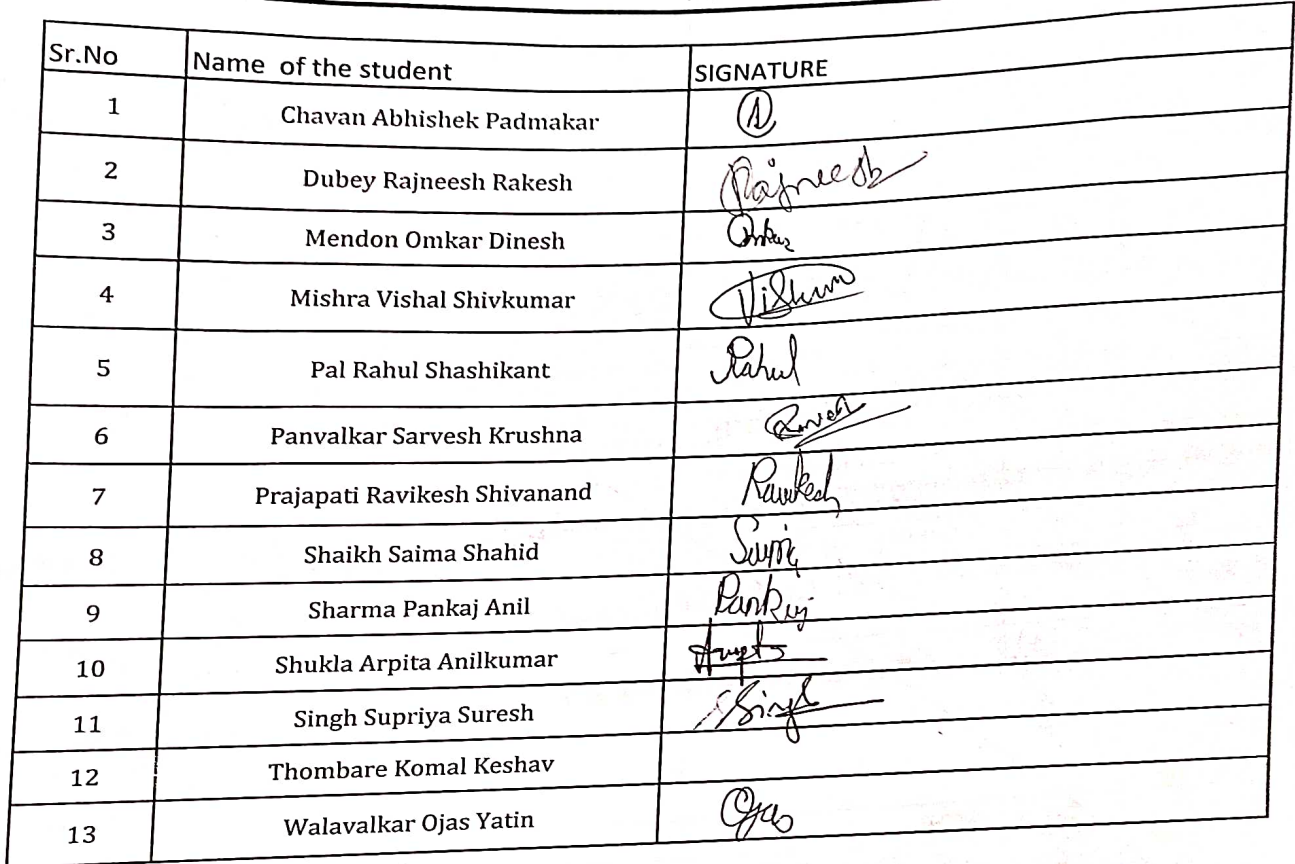 Sr.No Name of the student SIGNATURE
1 Chavan Abhishek Padmakar
2 Dubey Rajneesh Rakesh Rajneesh
3 Mendon Omkar Dinesh Omkar
4 Mishra Vishal Shivkumar
5 Pal Rahul Shashikant Rahul
6 Panvalkar Sarvesh Krushna
7 Prajapati Ravikesh Shivanand Ravikesh
8 Shaikh Saima Shahid
9 Sharma Pankaj Anil Pankaj
10 Shukla Arpita Anilkumar
11 Singh Supriya Suresh SSingh
12 Thombare Komal Keshav
13 Walavalkar Ojas Yatin Ojas